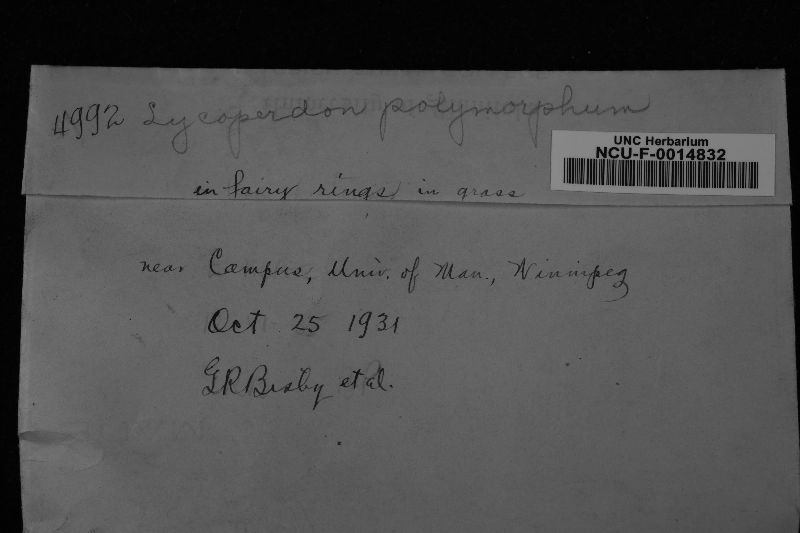 4992 Lycoperdon polymorphum
UNC Herbarium
NCU-F-0014832
in fairy rings in grass
near Campus, Univ. of Man., Winnipeg
Oct 25 1931
GR Bisby et al.